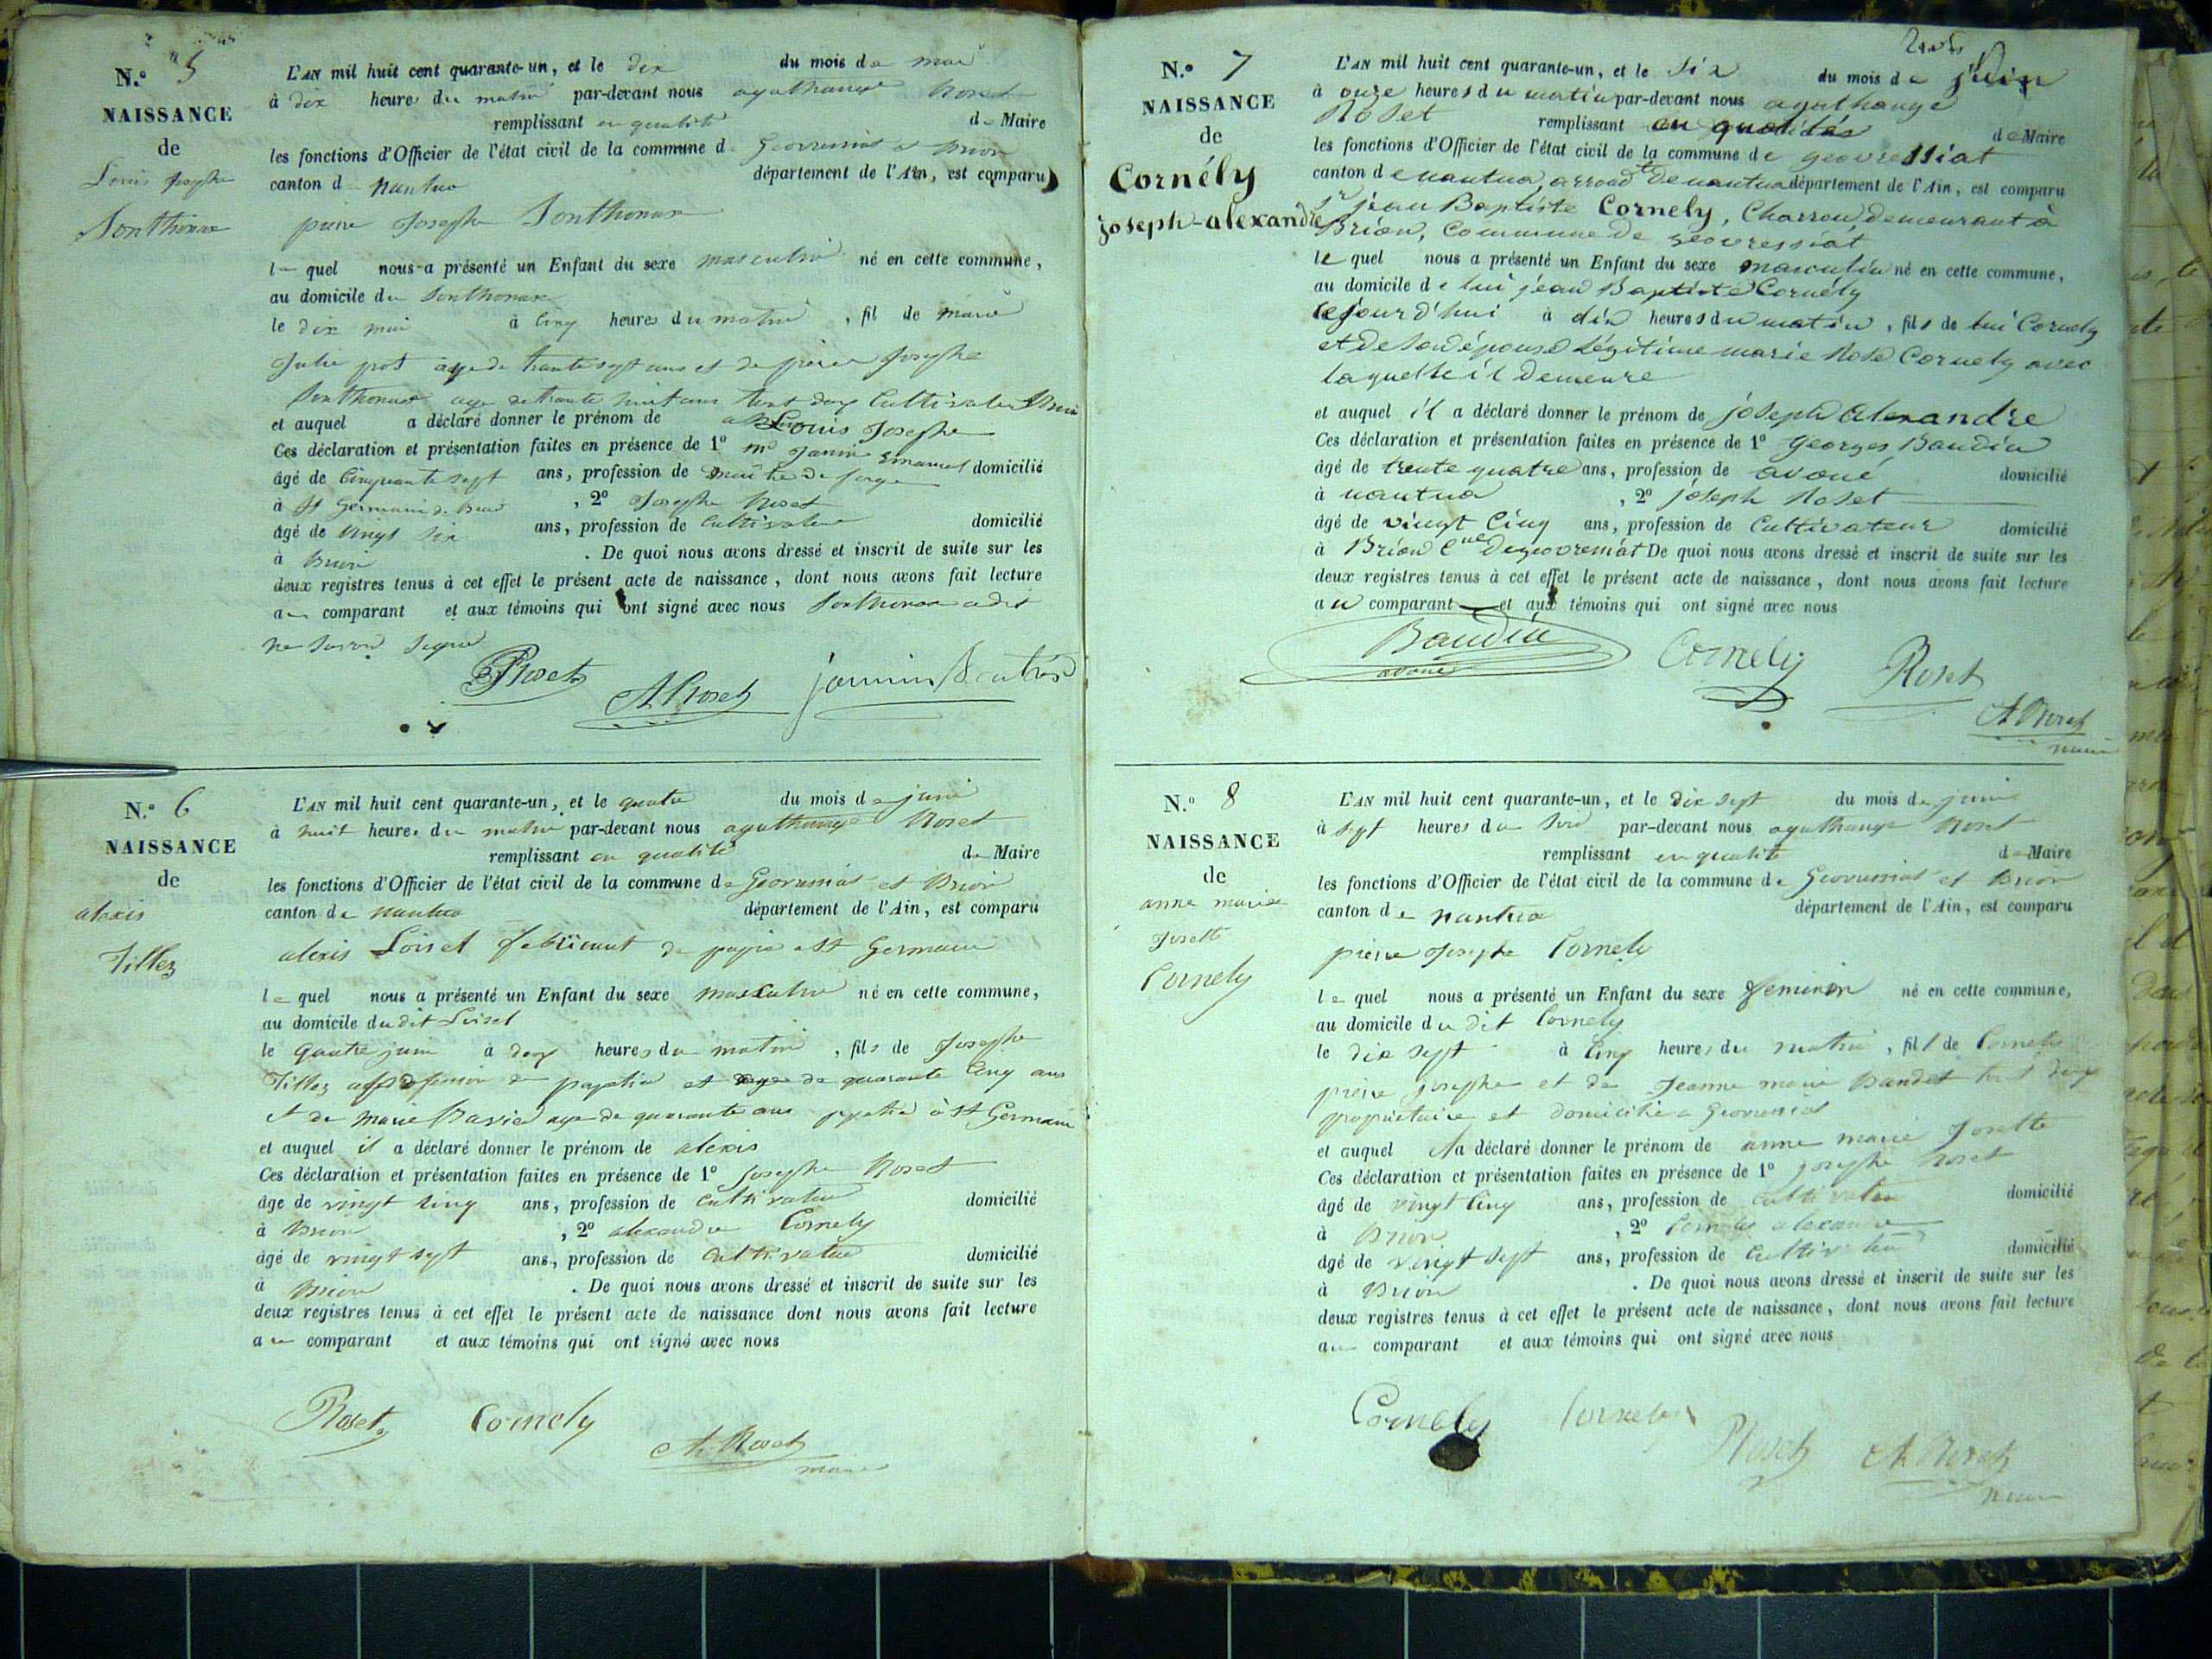 N.° 5
NAISSANCE
de
Louis Josephe
Sonthonax
L'AN mil huit cent quarante-un, et le dix du mois de mai
à dix heures du matin par-devant nous agathange Roset
remplissant en qualité de Maire
les fonctions d'Officier de l'état civil de la commune d Geovressiat et Brion
canton d nantua département de l'Ain, est comparu
pierre Josephe Sonthonax
le quel nous a présenté un Enfant du sexe masculin né en cette commune,
au domicile du Sonthonax
le dix mai à cinq heures du matin, fil de marie
Julie prot agé de trante sept ans et de pierre Josephe
Sonthonax age de trante huit ans tout deux Cultivateur
et auquel a déclaré donner le prénom de Louis Josephe
Ces déclaration et présentation faites en présence de 1° mr Janin Emanuel
âgé de Cinquante sept ans, profession de maître de forge domicilié
à St Germain de , 2° Josephe Roset
âgé de vingt six ans, profession de Cultivateur domicilié
à Brion . De quoi nous avons dressé et inscrit de suite sur les
deux registres tenus à cet effet le présent acte de naissance, dont nous avons fait lecture
au comparant et aux témoins qui ont signé avec nous Sonthonax a dit
ne savoir signé
Roset A. Roset janin
N.° 6
NAISSANCE
de
alexis
Tillez
L'AN mil huit cent quarante-un, et le quatre du mois de juin
à huit heures du matin par-devant nous agathange Roset
remplissant en qualité de Maire
les fonctions d'Officier de l'état civil de la commune de Geovressiat et Brion
canton de nantua département de l'Ain, est comparu
alexis Loiset fabricant de papié a St Germain
le quel nous a présenté un Enfant du sexe masculin né en cette commune,
au domicile du dit Loiset
le quatre juin à deux heures du matin, fils de Josephe
Tillez profession de papetié et age de quarante cinq ans
et de marie age de quarante ans papetié à St Germain
et auquel il a déclaré donner le prénom de alexis
Ces déclaration et présentation faites en présence de 1° Josephe Roset
âgé de vingt cinq ans, profession de cultivateur domicilié
à Brion , 2° alexandre Cornely
âgé de vingt sept ans, profession de cultivateur domicilié
à Brion . De quoi nous avons dressé et inscrit de suite sur les
deux registres tenus à cet effet le présent acte de naissance dont nous avons fait lecture
au comparant et aux témoins qui ont signé avec nous
Roset Cornely A. Roset
maire
N.° 7
NAISSANCE
de
Cornély
joseph-alexandre
L'AN mil huit cent quarante-un, et le six du mois de juin
à onze heures du matin par-devant nous agathange
Roset remplissant en qualités de Maire
les fonctions d'Officier de l'état civil de la commune de geovressiat
canton de nantua, arrondt de nantua département de l'Ain, est comparu
Sr jean Baptiste Cornely, Charron demeurant à
Brion, Commune de geovressiat
le quel nous a présenté un Enfant du sexe masculin né en cette commune,
au domicile de lui jean Baptiste Cornély
cejourd'hui à dix heures du matin, fils de lui Cornely
et de son épouse légitime marie Rose Cornely avec
laquelle il demeure
et auquel il a déclaré donner le prénom de joseph alexandre
Ces déclaration et présentation faites en présence de 1° Georges Baudin
âgé de trente quatre ans, profession de avoué domicilié
à nantua , 2° joseph Roset
âgé de vingt cinq ans, profession de Cultivateur domicilié
à Brion Cne de geovressiat De quoi nous avons dressé et inscrit de suite sur les
deux registres tenus à cet effet le présent acte de naissance, dont nous avons fait lecture
au comparant et aux témoins qui ont signé avec nous
Baudin Cornely Roset
avoué
A. Roset
maire
N.° 8
NAISSANCE
de
anne marie
Josette
Cornely
L'AN mil huit cent quarante-un, et le dix sept du mois de juin
à sept heures du soir par-devant nous agathange Roset
remplissant en qualité de Maire
les fonctions d'Officier de l'état civil de la commune de Geovressiat et Brion
canton de nantua département de l'Ain, est comparu
pierre Josephe Cornely
le quel nous a présenté un Enfant du sexe feminin né en cette commune,
au domicile du dit Cornely
le dix sept à cinq heures du matin, fil de Cornely
pierre josephe et de Jeanne marie Bandet tout deux
propriétaire et domicilié a Geovressiat
et auquel il a déclaré donner le prénom de anne marie Josette
Ces déclaration et présentation faites en présence de 1° josephe Roset
âgé de vingt cinq ans, profession de cultivateur domicilié
à Brion , 2° Cornely alexandre
âgé de vingt sept ans, profession de cultivateur domicilié
à Brion . De quoi nous avons dressé et inscrit de suite sur les
deux registres tenus à cet effet le présent acte de naissance, dont nous avons fait lecture
au comparant et aux témoins qui ont signé avec nous
Cornely Cornely Roset A. Roset
maire